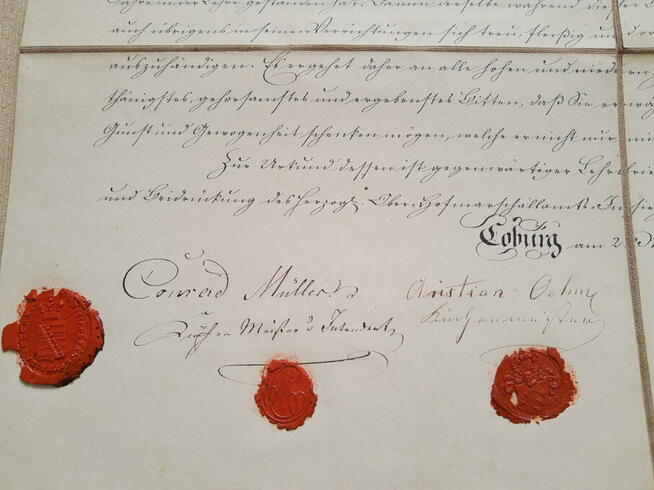 Jahre in der Lehre gestanden hat. Da nun derselbe während dieser
auch übrigens in seinen Verrichtungen sich treu, fleißig und
auszuhändigen. Es ergehet daher an alle hohen und niedern
thänigstes, gehorsamstes und ergebenstes Bitten, daß Sie
Gunst und Gewogenheit schenken mögen, welche er nicht nur
Zur Urkund dessen ist gegenwärtiger Lehrbrie
und Beidrückung des Herzogl. Ober-Hofmarschallamts-In
Coburg am
Conrad Müller
Küchen Meister u Intendant
Christian Oehme
Küchenmeister